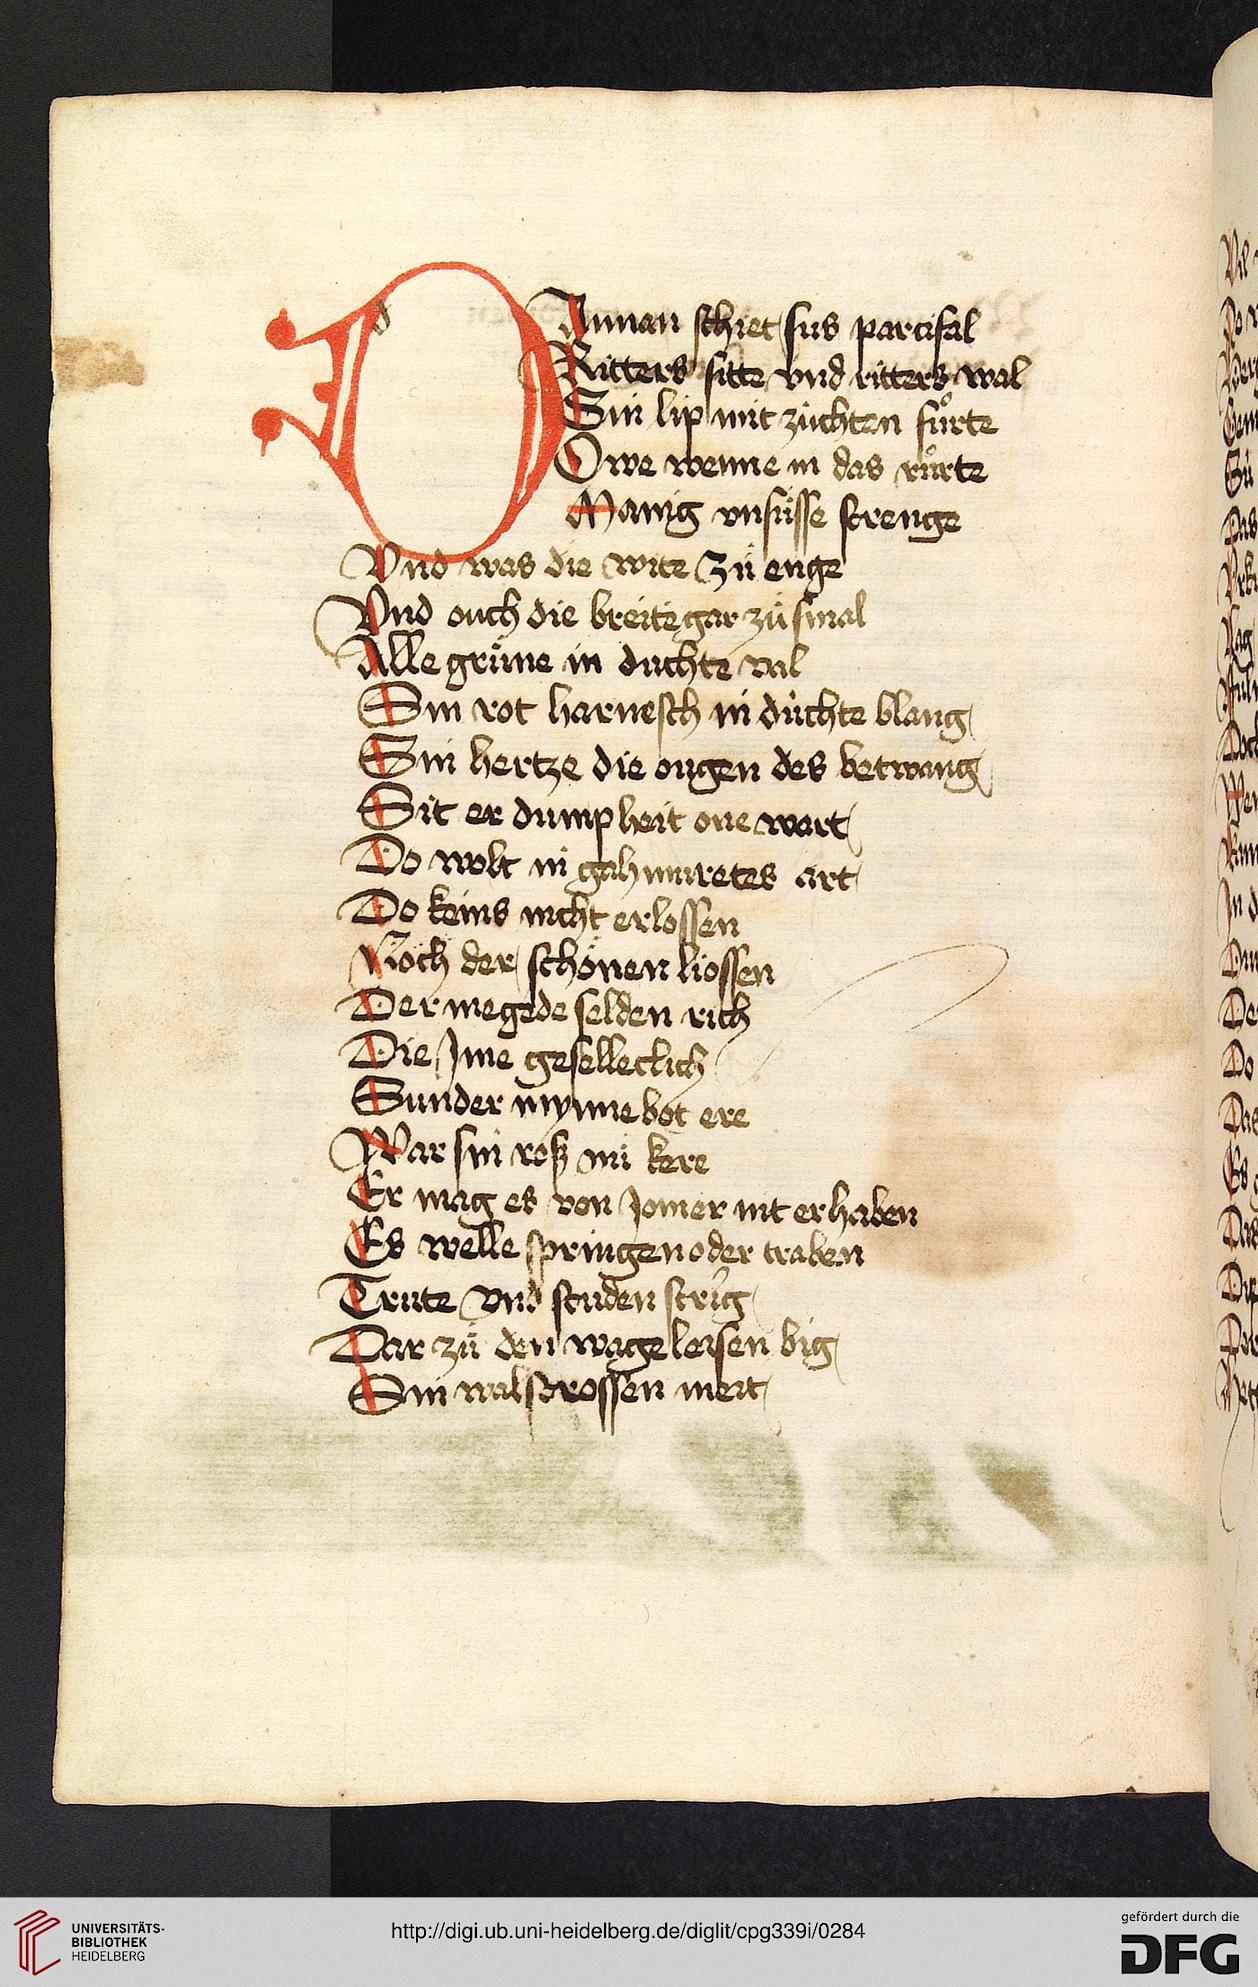 DAnnan schiet sus parcifal
Ritters sitte vnd ritters wal
Sin lip mit zúchten fuͦrte
Owe wenne in das ruͦrte
Manig vnsuͤsse strenge
Vnd was die wite zuͤ enge
Vnd ouch die breite gar zuͤ smal
Alle gruͤne in duchte val
Sin rot harnesch in dúchte blang
Sin hertze die ougen des betwang
Sit er dumpheit one wart
Do wolt in gahmuretes art
Do keins nicht erlossen
Noch der schönen liossen
Der megede selden rich
Die Ime geselleclich
Sunder mynne bot ere
War sin roß nuͤ kere
Er mag es von Jomer nit erhaben
Es welle springen oder traben
Crute vnd studen strig
Dar zuͤ den wage leisen big
Sin walstrossen meit
UNIVERSITÄTS-
BIBLIOTHEK
HEIDELBERG
http://digi.ub.uni-heidelberg.de/diglit/cpg339i/0284
gefördert durch die
DFG